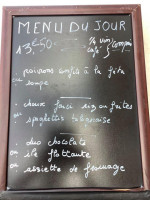 MENU DU JOUR
13€50
1/4 vin compris
café
poivrons confits à la féta
ou soupe
choux farci riz ou frites
ou spaghettis
duo chocolats
ou île flottante
ou assiette de fromage